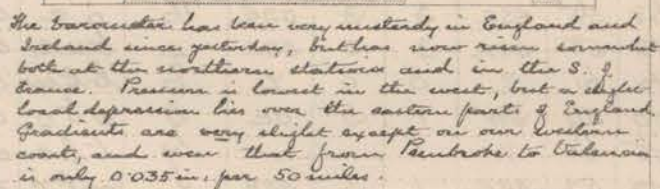 The barometer has been very unsteady in England and
Ireland since yesterday, but has now risen somewhat
both at the northern stations and in the S. of
France. Pressure is lowest in the west, but a slight
local depression lies over the eastern parts of England
Gradients are very slight except on our western
coasts, and even that from Pembroke to Valencia
is only 0.035 in, per 50 miles.